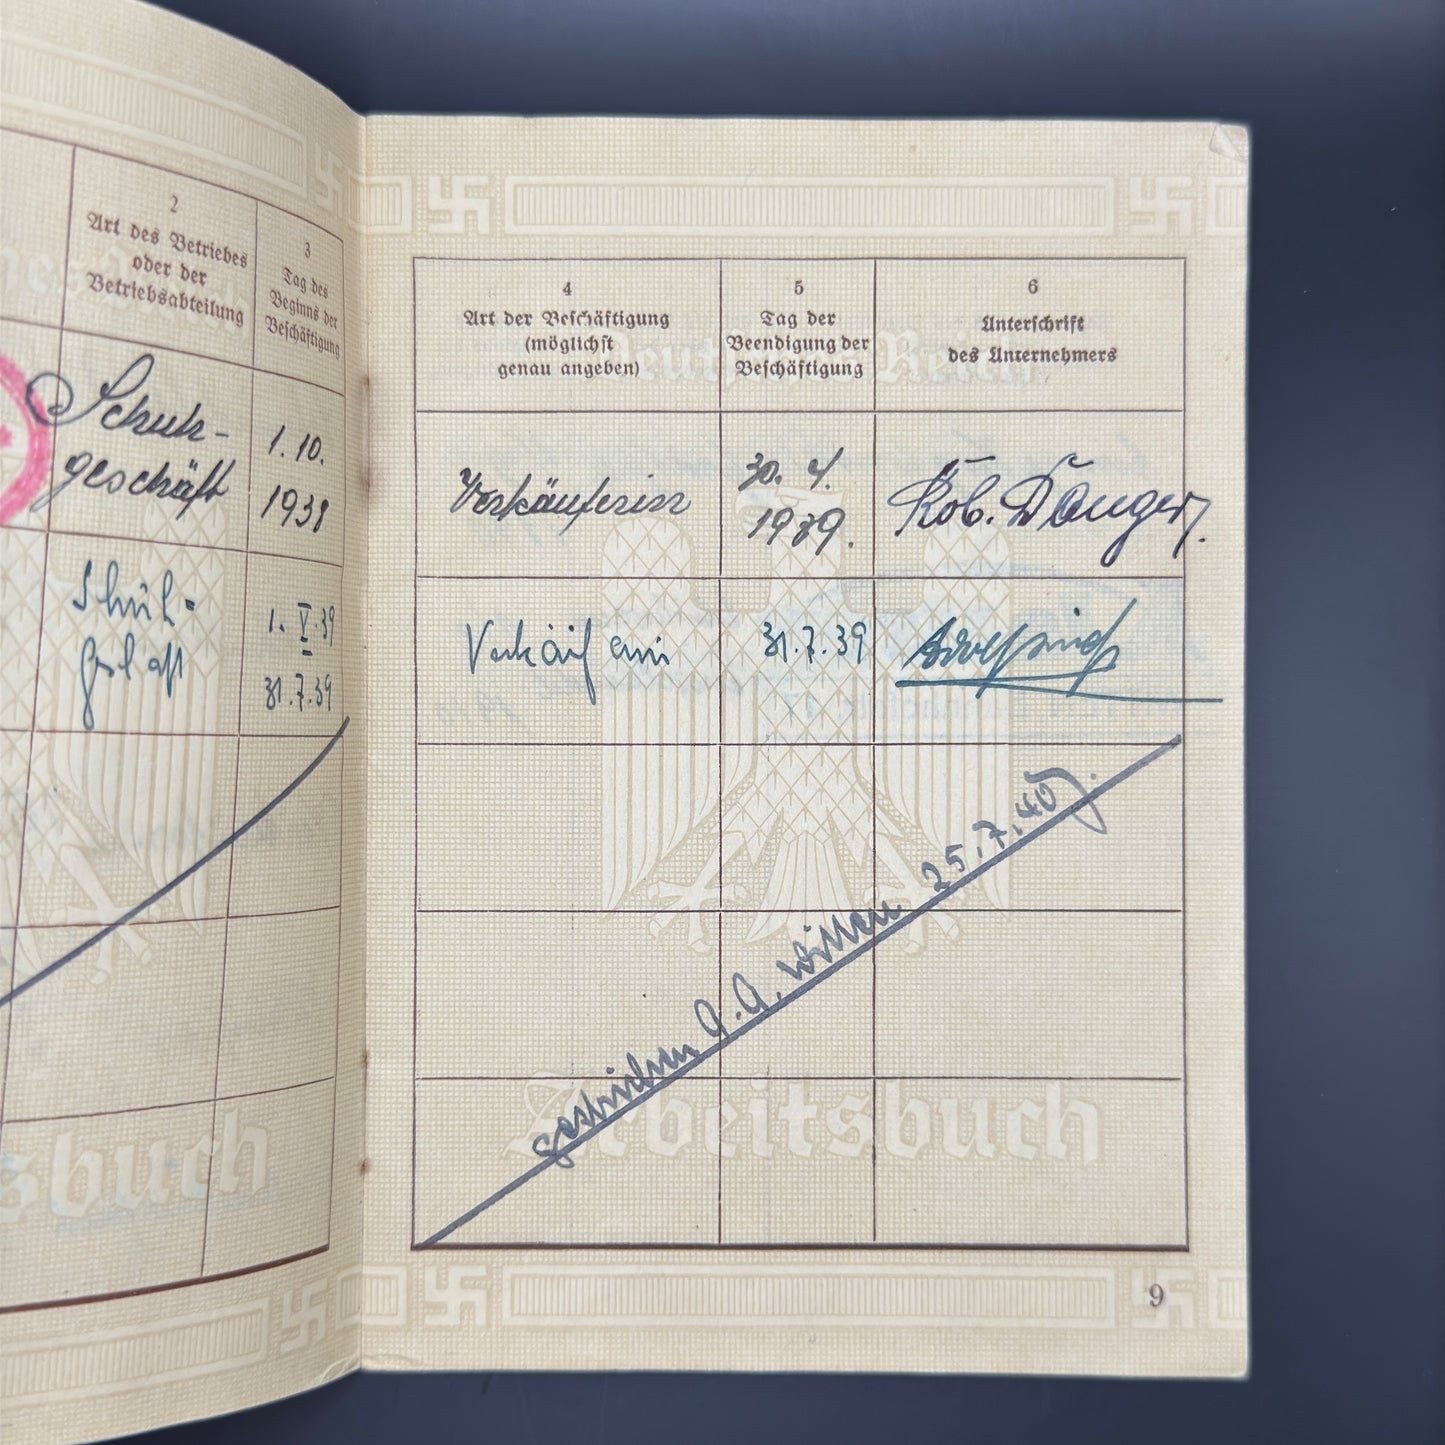 2
Art des Betriebes
oder der
Betriebsabteilung
3
Tag des
Beginns der
Beschäftigung
Schuh-
geschäft
1.10.
1938
Schuh-
1. V. 39
31.7.39
sbuch
4
Art der Beschäftigung
(möglichst
genau angeben)
5
Tag der
Beendigung der
Beschäftigung
6
Unterschrift
des Unternehmers
Deutsches Reich
Verkäuferin
30. 4.
1939.
Rob.
Verkäuferin
31.7.39
gestrichen A.A. Witten 25.7.40
Arbeitsbuch
9